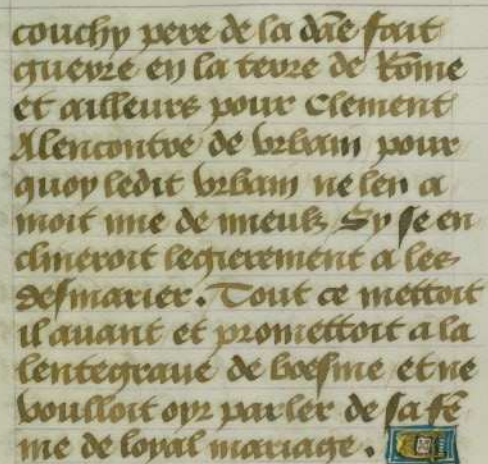 couchy pere de la dãe fait
guerre en la terre de Rõme
et ailleurs pour Clement
Alencontre de vrbain pour
quoy ledit vrbain ne len a
moit mie de mieulx Sy se en
clineroit legierement a les
desmarier. Tout ce mettoit
il auant et promettoit a la
lentegraue de boesme et ne
voulloit oyr parler de sa fẽ
me de loyal mariage.